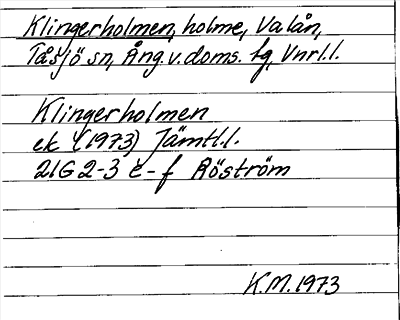 Klingerholmen, holme, Valån,
Tåsjö sn, Ång.v.doms. fg, Vnrl.l.
Klingerholmen
ek Y (1973) Jämtl.l.
21G 2-3 e-f Röström
K.M. 1973